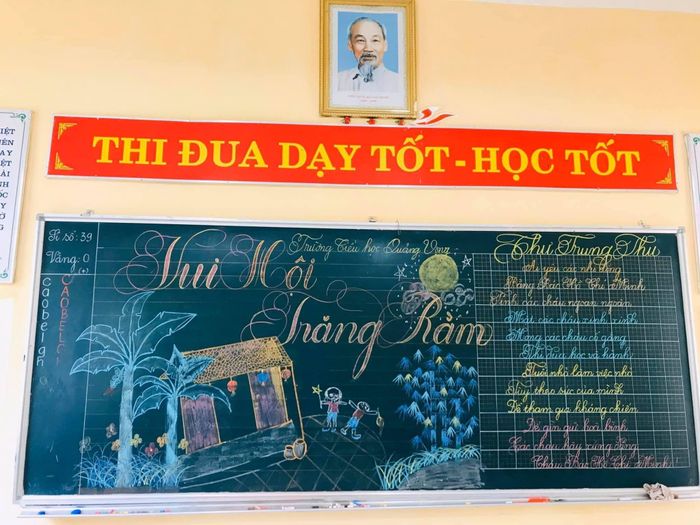 THI ĐUA DẠY TỐT - HỌC TỐT
Sĩ số: 39
Vắng: 0
(+)
Trường Tiểu học Quảng Vọng
Vui Hội
Trăng Rằm
Thư Trung Thu
Ai yêu các nhi đồng
Bằng Bác Hồ Chí Minh
Tính các cháu ngoan ngoãn
Mặt các cháu xinh xinh
Mong các cháu cố gắng
Thi đua học và hành
Tuổi nhỏ làm việc nhỏ
Tùy theo sức của mình
Để tham gia kháng chiến
Để gìn giữ hoà bình
Các cháu hãy xứng đáng
Cháu Bác Hồ Chí Minh!